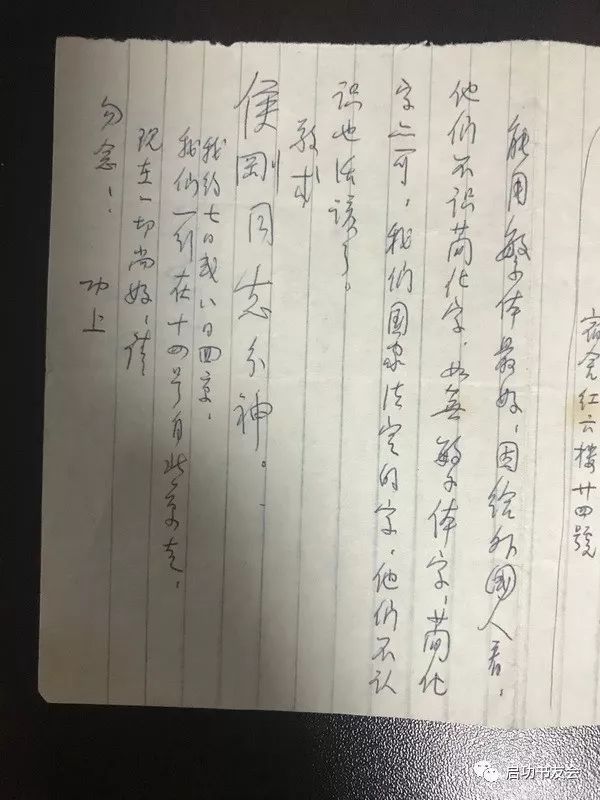 宿舍红六楼廿四號
能用繁体最好，因给外國人看，
他们不识简化字，如無繁体字，简化
字亦可，我们國家法定的字，他们不认
识也活该了。
敬求
侯剛同志分神。
我约七日或八日回京，
我们一行在十四号自北京走，
现在一切尚好，请
勿念！
功上
启功书友会